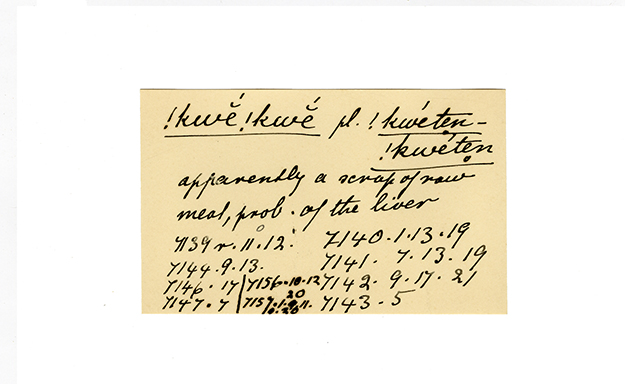 !kwẽ́!kwẽ́ pl. !kwéten-
!kwéten
apparently a scrap of raw
meat, prob. of the liver
7139 r. 11. 12. 7140. 1. 13. 19
7144. 9. 13. 7141. 7. 13. 19
7146. 17 7156. 10. 12 7142. 9. 17. 21
20
7147. 7 7143. 5